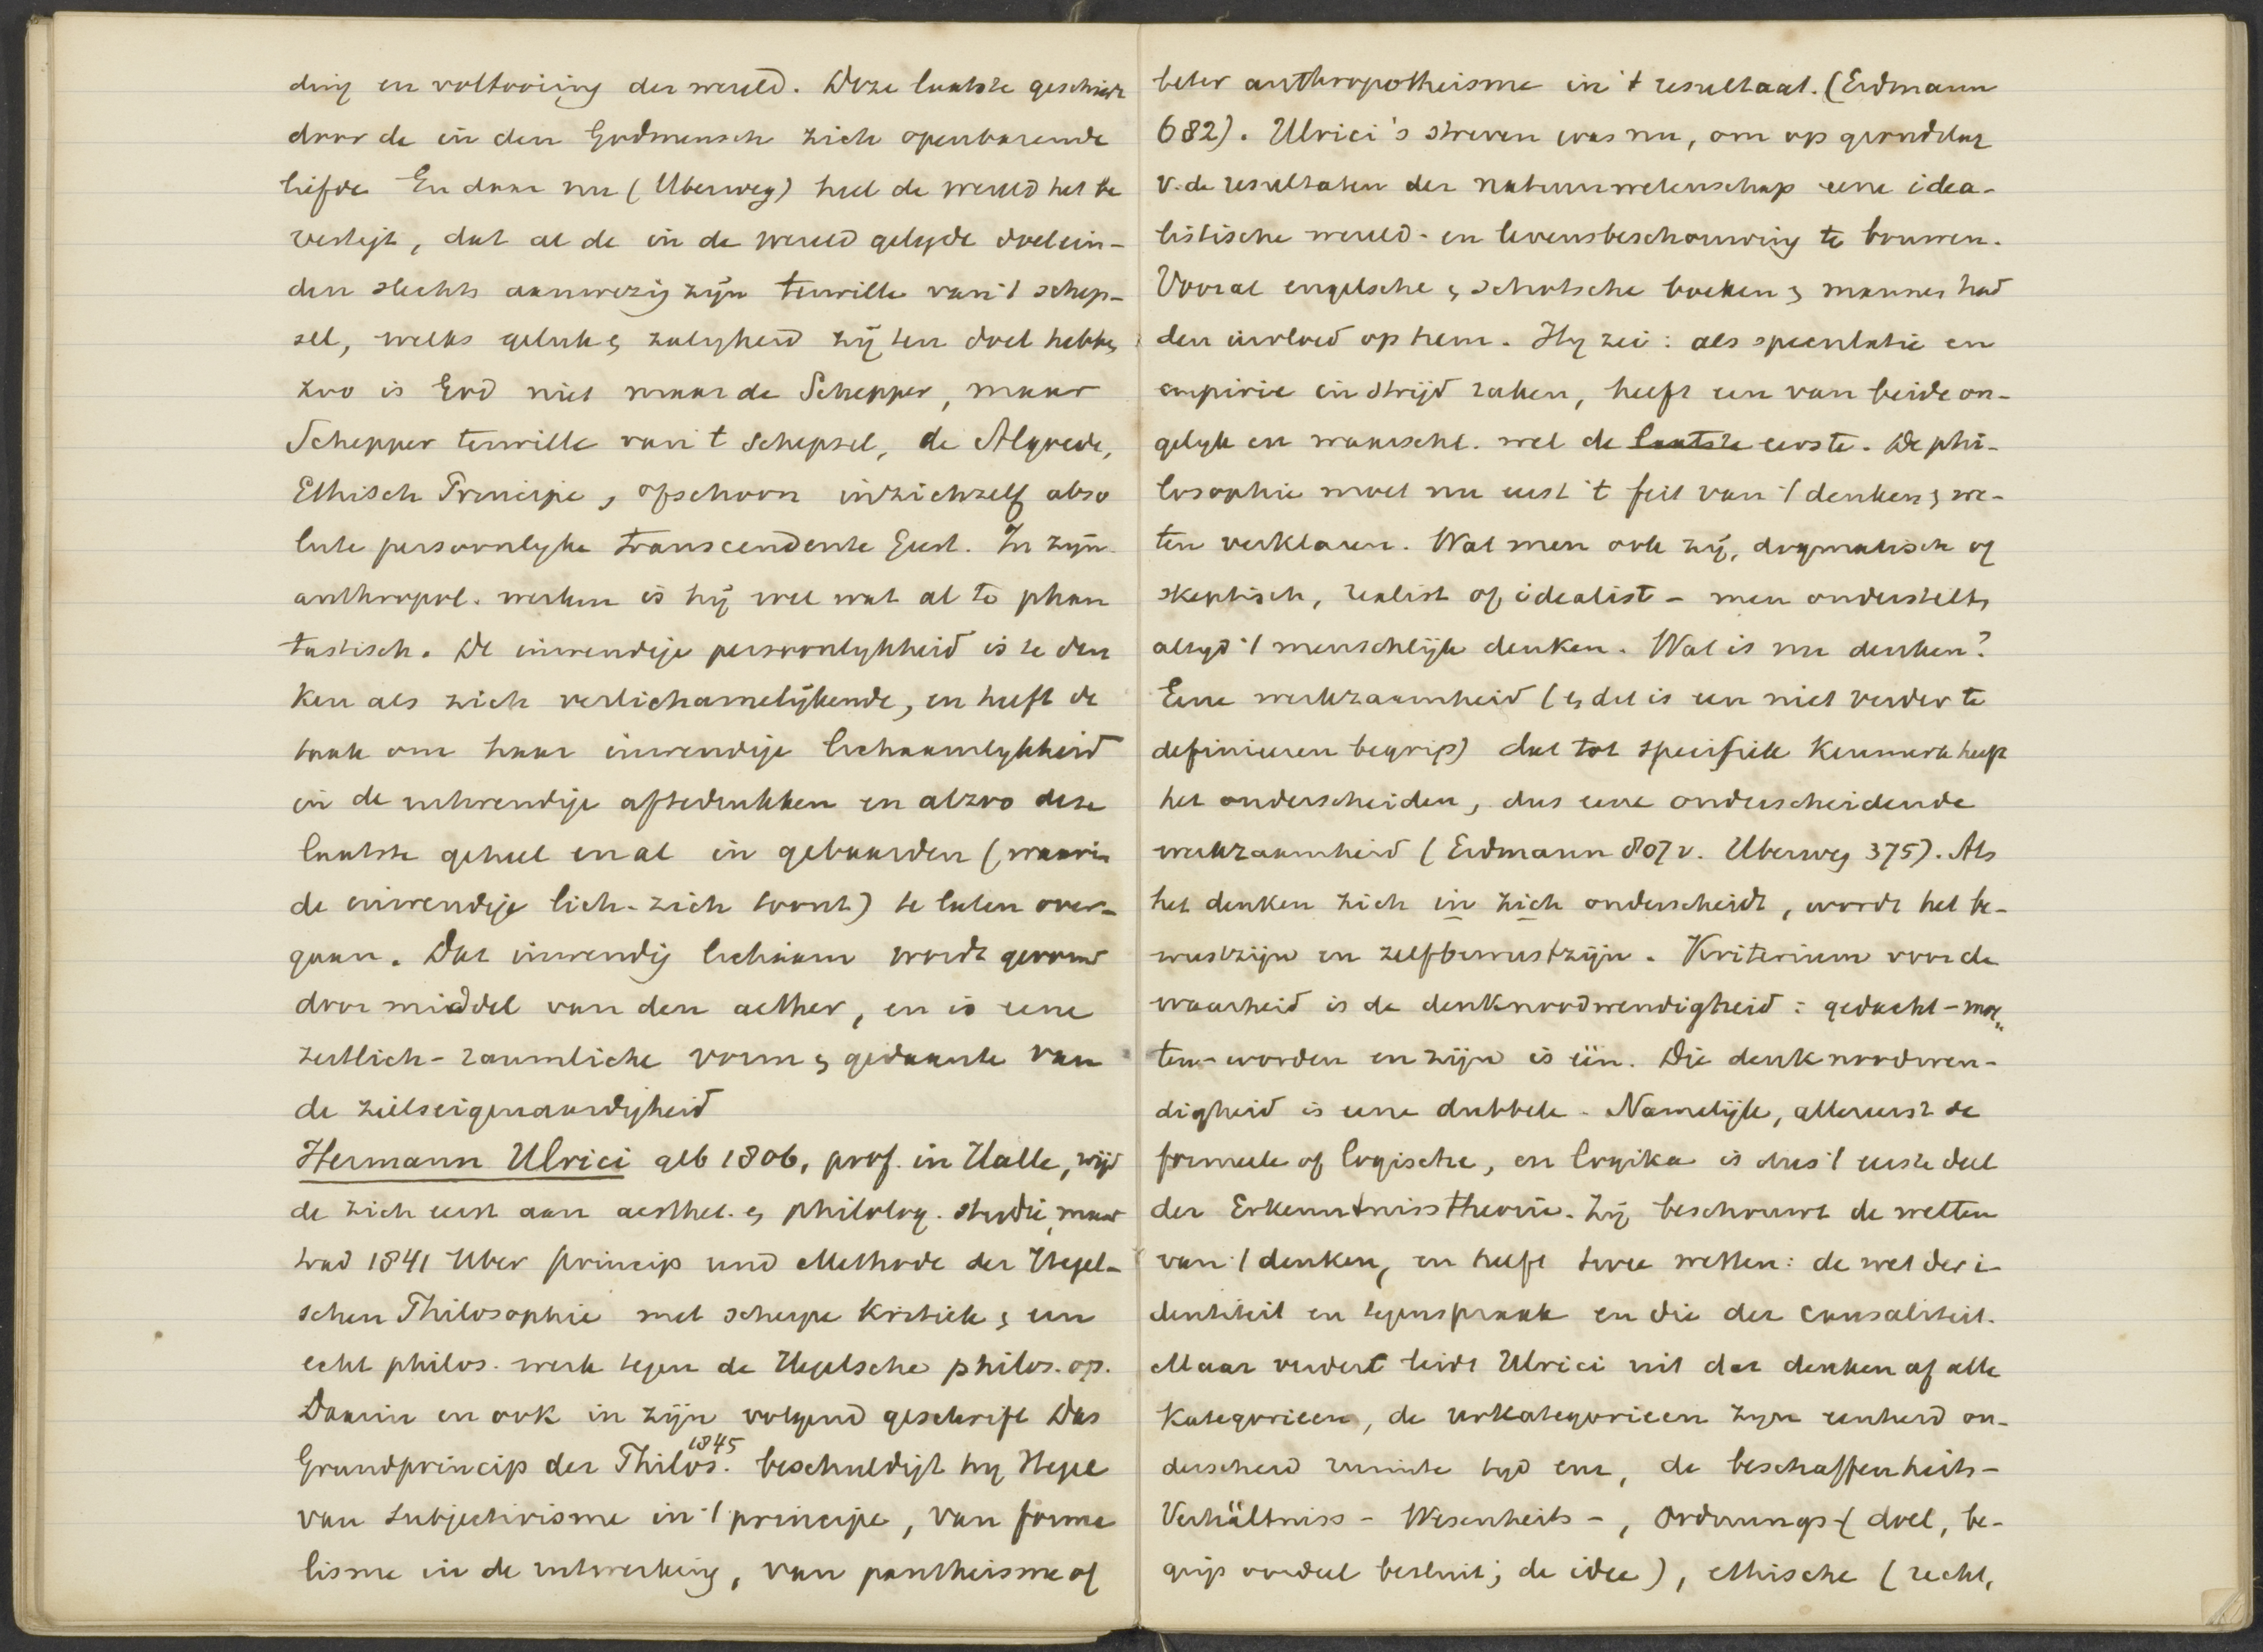 ding en voltooiing der wereld. Deze laatste geschiedt
door de in den Godmensch zich openbarende
liefde En daar nu (Uberweg) heel de wereld het be
vestigt, dat al de in de wereld gelegde doelein-
den slechts aanwezig zijn terwille van 't schep-
sel, welks geluk & zaligheid zij ten doel hebben,
zoo is God niet maar de Schepper, maar
Schepper terwille van 't schepsel, de Algoede,
Ethisch Principe, ofschoon in zichzelf abso
lute persoonlyke transcendente Geest. In zijn
anthropol. werken is hij wel wat al te phan
tastisch. De inwendige persoonlykheid is te den
ken als zich verlichamelijkende, en heeft de
taak om haar inwendige lichaamlykheid
in de uitwendige aftedrukken en alzoo deze
laatste geheel en al in gebaarden (waarin
de inwendige lich. zich toont) te laten over-
gaan. Dat inwendig lichaam wordt gevormd
door middel van den aether, en is eene
zeitlich-raumliche vorm & gedaante van
de zielseigenaardigheid
Hermann Ulrici geb 1806, prof. in Halle, wijd
de zich eerst aan aesthet. & philolog. studie, maar
trad 1841 Uber Princip und Methode der Hegel-
schen Philosophie met scherpe kritiek & een
echt philos. werk tegen de Hegelsche philos. op.
Daarin en ook in zijn volgend geschrift Das
Grundprincip der Philos. 1845 beschuldigt hij Hegel
van subjectivisme in 't principe, van forma
lisme in de uitwerking, van pantheisme of
beter anthropotheisme in 't resultaat. (Erdmann
682). Ulrici's streven was nu, om op grondslag
v. de resultaten der natuurwetenschap eene idea-
listische wereld- en levensbeschouwing te bouwen.
Vooral engelsche & schotsche boeken & mannen had
den invloed op hem. Hy zei: als speculatie en
empirie in strijd raken, heeft een van beide on-
gelyk en waarschl. wel de laatste eerste. De phi-
losophie moet nu eerst 't feit van 't denken & we-
ten verklaren. Wat men ook zij, dogmatisch of
skeptisch, realist of idealist - men onderstelt
altyd 't menschlijk denken. Wat is nu denken?
Eene werkzaamheid (& dit is een niet verder te
definieeren begrip) dat tot specifiek kenmerk heeft
het onderscheiden, dus eene onderscheidende
werkzaamheid (Erdmann 807 v. Uberweg 375). Als
het denken zich in zich onderscheidt, wordt het be-
wustzijn en zelfbewustzijn. Kriterium voor de
waarheid is de denknoodwendigheid: gedacht-moe„
ten-worden en zijn is één. Die denknoodwen-
digheid is eene dubbele. Namelijk, allereerst de
formeele of logische, en logika is dus 't eerste deel
der Erkenntnisstheorie. Zij beschouwt de wetten
van 't denken, en heeft twee wetten: de wet der i-
dentiteit en tegenspraak en die der causaliteit.
Maar verder leidt Ulrici uit dat denken af alle
Kategorieen, de urkategorieen zyn eenheid on-
derscheid ruimte tyd enz, de beschaffenheits-
Verhältniss- Wesenheits-, Ordnungs- (doel, be-
grip oordeel besluit; de idee), ethische (recht,